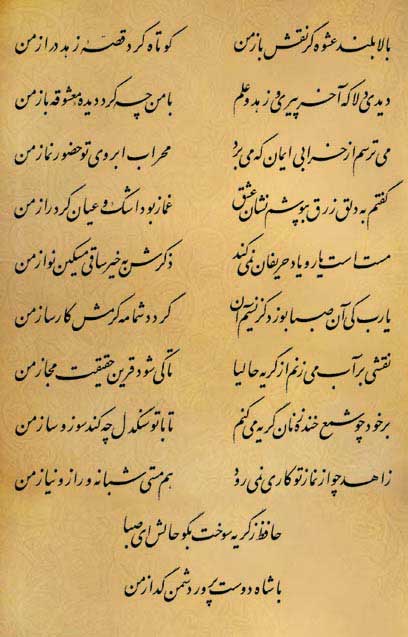 بالابلند عشوه گر نقش باز من کوتاه کرد قصهٔ زهد دراز من
دیدی دلا که آخر پیری و زهد و علم با من چه کرد دیدهٔ معشوقه باز من
می ترسم از خرابی ایمان که می برد محراب ابروی تو حضور نماز من
گفتم به دلق زرق بپوشم نشان عشق غماز بود اشک و عیان کرد راز من
مست است یار و یاد حریفان نمی کند ذکرش به خیر ساقی مسکین نواز من
یارب کی آن صبا بوزد کز نسیم آن گردد شمامه کرمش کارساز من
نقشی بر آب می زنم از گریه حالیا تا کی شود قرین حقیقت مجاز من
بر خود چو شمع خنده زنان گریه می کنم تا با تو سنگدل چه کند سوز و ساز من
زاهد چو از نماز تو کاری نمی رود هم مستی شبانه و راز و نیاز من
حافظ ز گریه سوخت بگو حالش ای صبا
با شاه دوست پرور دشمن گداز من